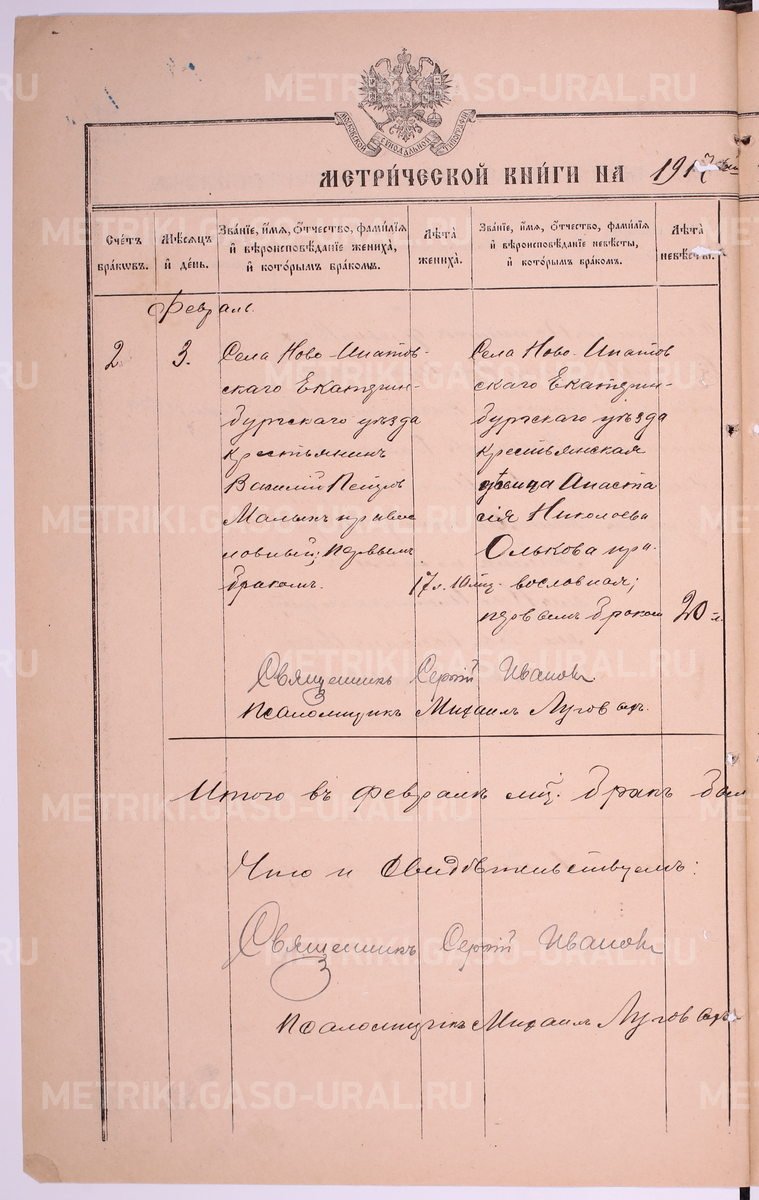 МОСКОВСКОЙ СУНОДАЛЬНОЙ ТИПОГРАФIИ
МЕТРИ́ЧЕСКОЙ КНИ́ГИ НА 1917
Сче́тъ бра́кѡвъ.
Мѣ́сѧцъ и҆ де́нь.
Зва́нїе, и҆́мѧ, ѻ҆́тчество, фами́лїѧ и҆ вѣроисповѣ́данїе жениха̀, и҆ кото́рымъ бра́комъ.
Лѣ́та жениха̀.
Зва́нїе, и҆́мѧ, ѻ҆́тчество, фами́лїѧ и҆ вѣроисповѣ́данїе невѣ́сты, и҆ кото́рымъ бра́комъ.
Лѣ́та невѣ́сты.
Февраль.
2
3.
Села Ново-Ипатов-
скаго Екатерин-
бургскаго уѣзда
крестьянинъ
Василий Петров
Малыхъ правос
лавный; первымъ
бракомъ.
17 л. 10 мц.
Села Ново-Ипатов
скаго Екатерин-
бургскаго уѣзда
крестьянская
дѣвица Анаста
сiя Николаева
Олькова пра-
вославная;
первымъ браком
20 л.
Священникъ Сергiй Ивановъ.
Псаломщикъ Михаилъ Луговыхъ.
Итого въ Февралѣ мц. бракъ был
Что и Свидѣтельствуемъ:
Священникъ Сергiй Ивановъ
Псаломщикъ Михаилъ Луговыхъ
METRIKI.GASO-URAL.RU